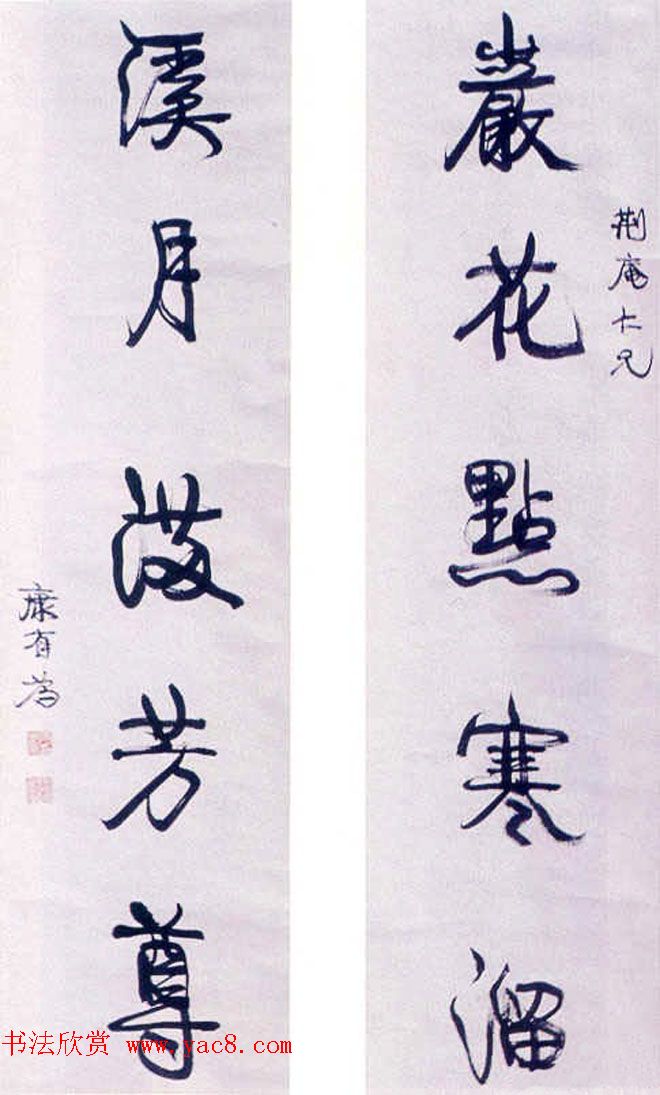 荆庵大兄
巖花點寒溜
溪月滿芳尊
康有為
书法欣赏 www.yac8.com